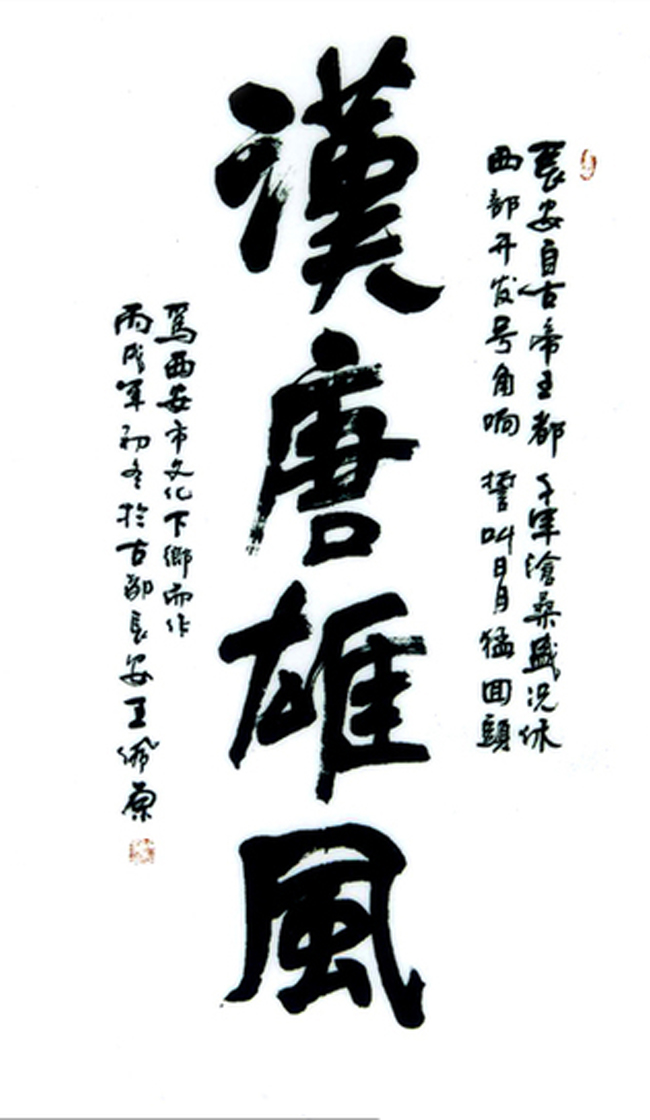 長安自古帝王都 千軍滄桑盛况休
西部开发号角响 誓叫日月猛回頭
漢唐雄風
為西安市文化下鄉而作
丙戌年初冬於古都長安王佩